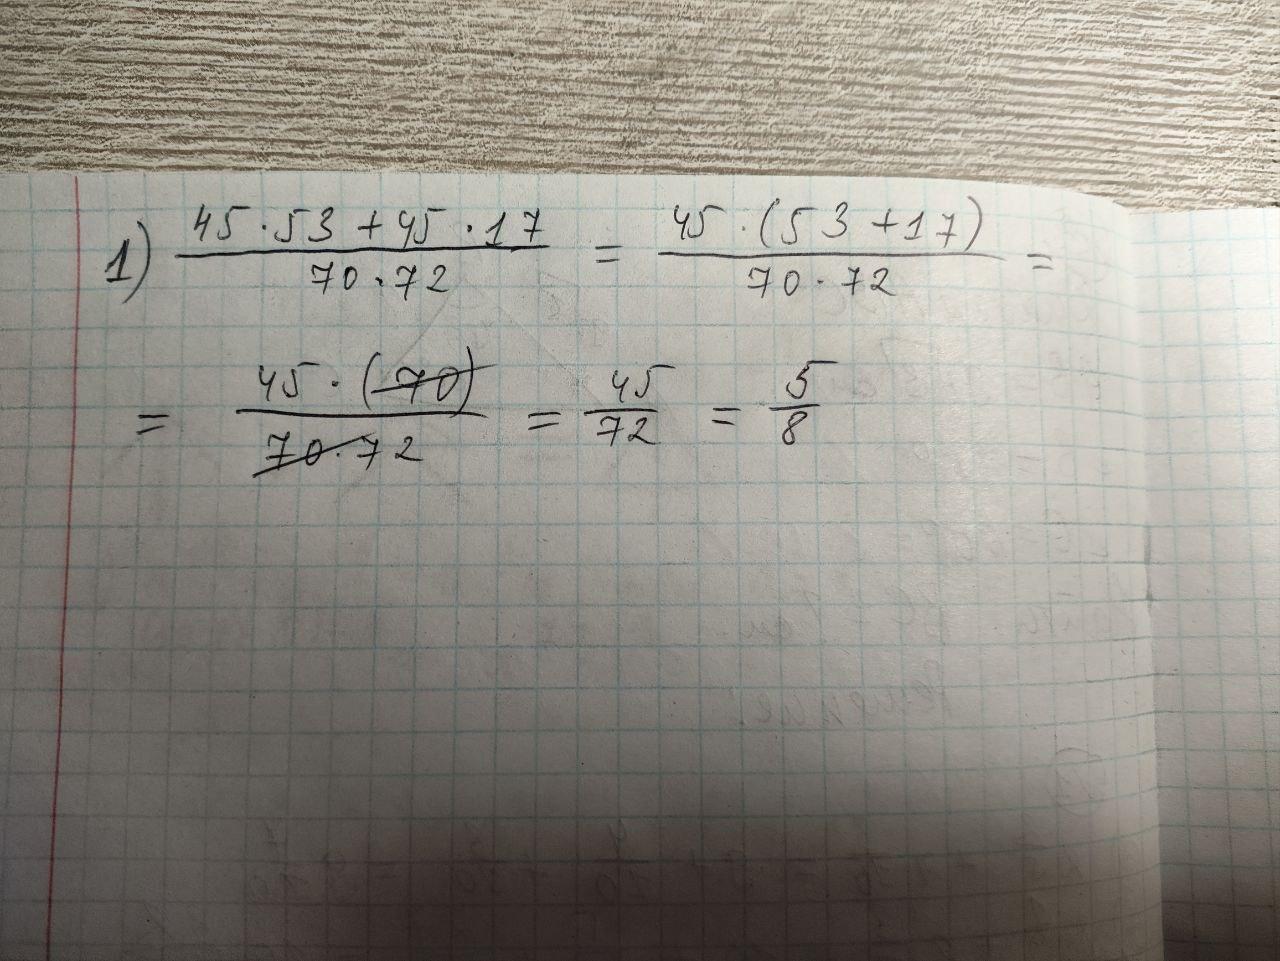 1) (45·53+45·17)/(70·72) = (45·(53+17))/(70·72) =
= (45·(70))/(70·72) = 45/72 = 5/8